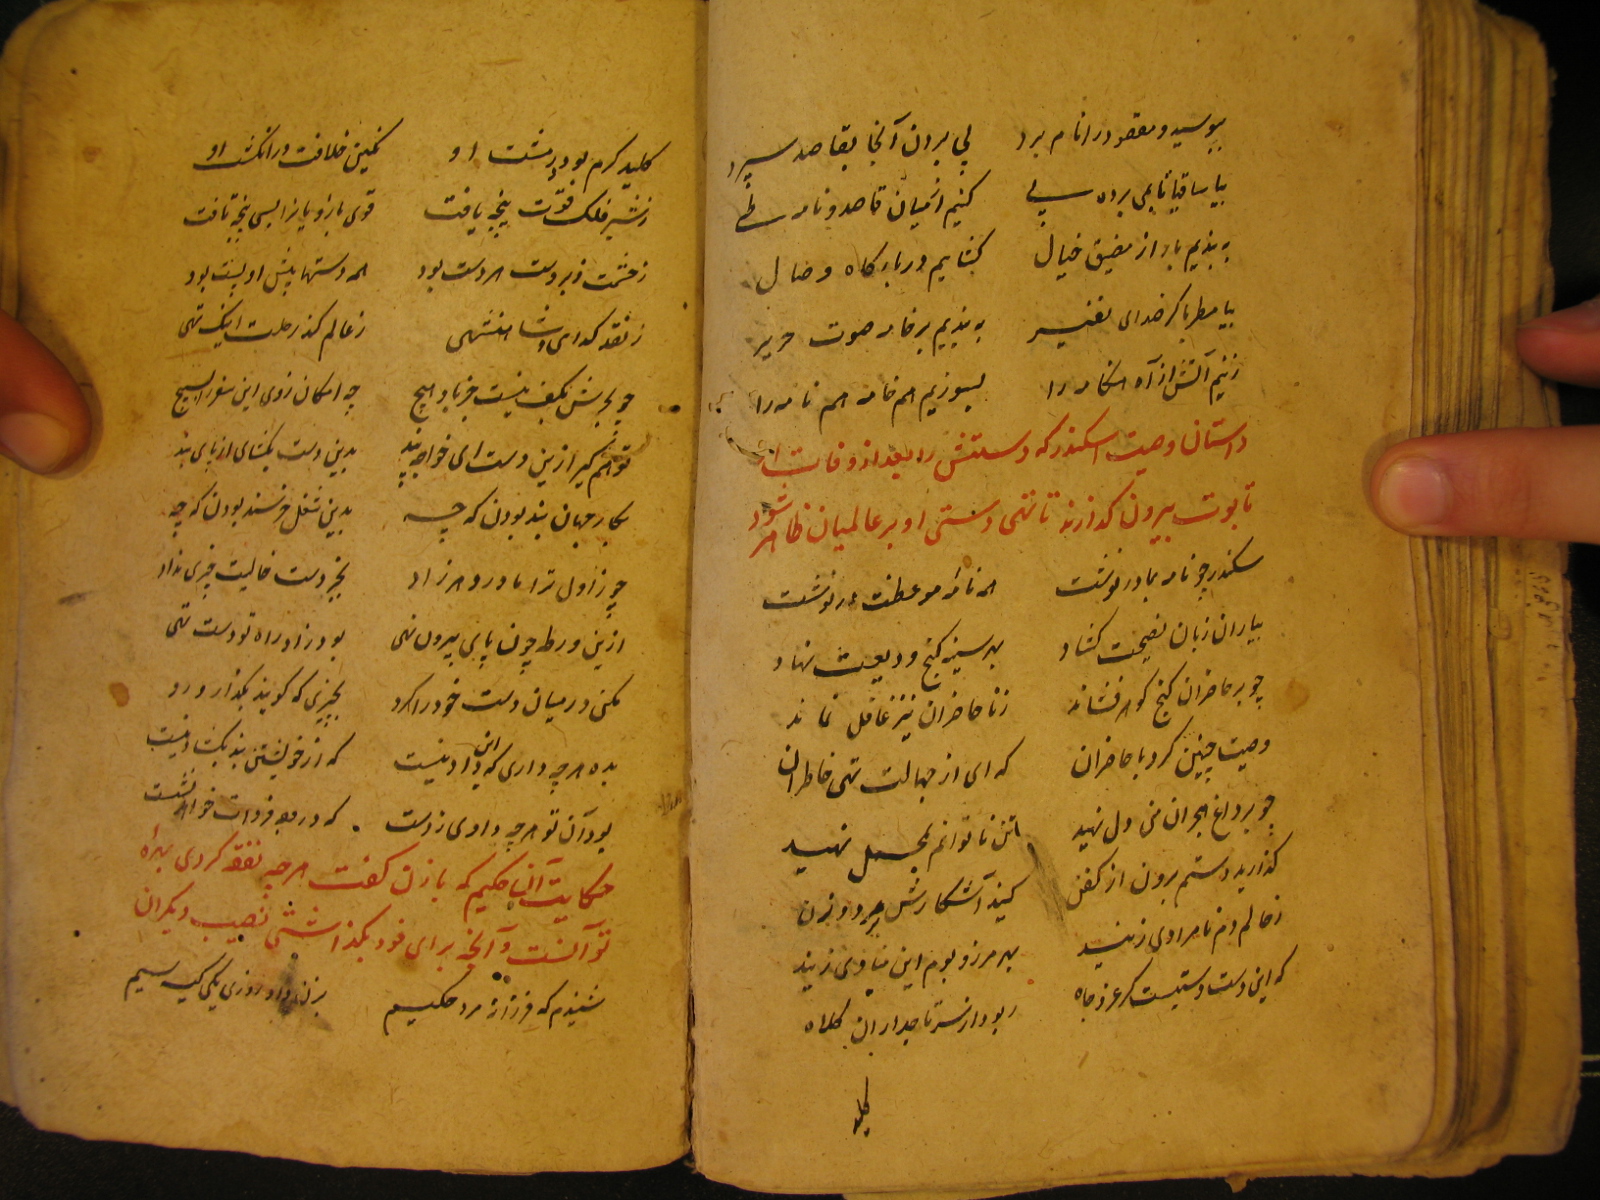 ببوسید و مقصود را نام برد پی بردن آنجا بقاصد سپرد
بیا ساقیا تا بمی برده پی کنیم از میان قاصد و نامه طی
ببندیم بار از مضیق خیال کشایم در بارکاه وصال
بیا مطربا کز صدای نفیر ببندیم بر خامه صوت صریر
زنیم آتش از آه هنکامه را بسوزیم هم خامه هم نامه را
داستان وصیت اسکندر که دستش را بعد از وفات از
تابوت بیرون کذارند تا تهی دستی او بر عالمیان ظاهر شود
سکندر چو نامه بمادر نوشت همه نامه موعظت در نوشت
بیاران زبان نصیحت کشاد بهر سینه کنج ودیعت نهاد
چو بر حاضران کنج کوهر فشاند ز نا حاضران نیز غافل نماند
وصیت چنین کرد با حاضران که ای از جهالت تهی خاطران
چو بر داغ هجران من دل نهید تن ناتوانم بمحمل نهید
کذارید دستم برون از کفن کنید آشکارش بر مرد و زن
ز حالم دم نامرادی زنید بهر مرز و بوم این منادی زنید
که این دست دستیست کز عز و جاه ربود از سر تاجداران کلاه
کلید
کلید کرم بود در مشت او نکین خلافت در انکشت او
ز شیر فلک قوت پنجه یافت قوی بازویانرا بسی پنجه تافت
ز حشمت زبردست هر دست بود همه دستها پیش او پست بود
ز نقد کدای و شاهنشهی ز عالم کند رحلت اینک تهی
چو بحرش بکف نیست جز باد هیچ چه امکان ز وی این سفر را بسیج
تو هم کیر ازین دست ای خواجه پند بدین دست بکشای از پای بند
بکار جهان بند بودن که چه بدین شغل خرسند بودن که چه
چو ز اول ترا مادر دهر زاد بجز دست خالیت چیزی نداد
ازین ورطه چون پای بیرون نهی بود زاد راه تو دست تهی
مکن در میان دست خود را کرد بچیزی که کویند بکذار و رو
بده هر چه داری که این دادنیست که از خویشتن بند بکشادنیست
بود آن تو هر چه دادی ز دست که در مع فردات خواهد نشست
حکایت آن حکیم که با زن کفت هر چه نفقه کردی بهرهٔ
تو آنست و آنچه برای خود بکذاشتی نصیب دیکران
شنیدم که فرزانه مرد حکیم بزن داد روزی یکی کیسه سیم